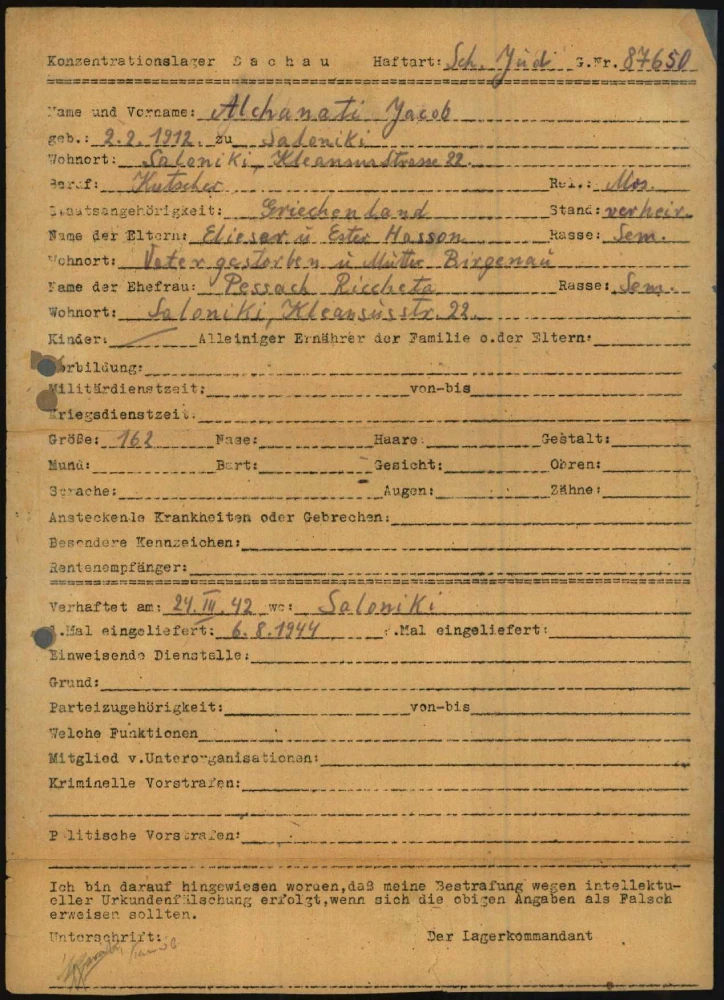 Konzentrationslager Dachau Haftart: Sch. Jude G.Nr. 87650
Name und Vorname: Alchanati Jacob
geb.: 2.2.1912. zu Saloniki
Wohnort: Saloniki, 22.
Beruf: Kutscher Rel.: Mos.
Staatsangehörigkeit: Griechenland Stand: verheir.
Name der Eltern: Elieser u Ester Hasson Rasse: Sem.
Wohnort: Vater gestorben u Mutter Birgenau
Name der Ehefrau: Pessach Riccheta Rasse: Sem.
Wohnort: Saloniki, 22.
Kinder: Alleiniger Ernährer der Familie o.der Eltern:
Vorbildung:
Militärdienstzeit: von-bis
Kriegsdienstzeit:
Größe: 162 Nase: Haare: Gestalt:
Mund: Bart: Gesicht: Ohren:
Sprache: Augen: Zähne:
Ansteckende Krankheiten oder Gebrechen:
Besondere Kennzeichen:
Rentenempfänger:
Verhaftet am: 24.III.42 wo: Saloniki
1.Mal eingeliefert: 6.8.1944 .Mal eingeliefert:
Einweisende Dienstelle:
Grund:
Parteizugehörigkeit: von-bis
Welche Funktionen
Mitglied v.Unterorganisationen:
Kriminelle Vorstrafen:
Politische Vorstrafen:
Ich bin darauf hingewiesen worden,daß meine Bestrafung wegen intellektu-
eller Urkundenfälschung erfolgt,wenn sich die obigen Angaben als Falsch
erweisen sollten.
Unterschrift: Der Lagerkommandant